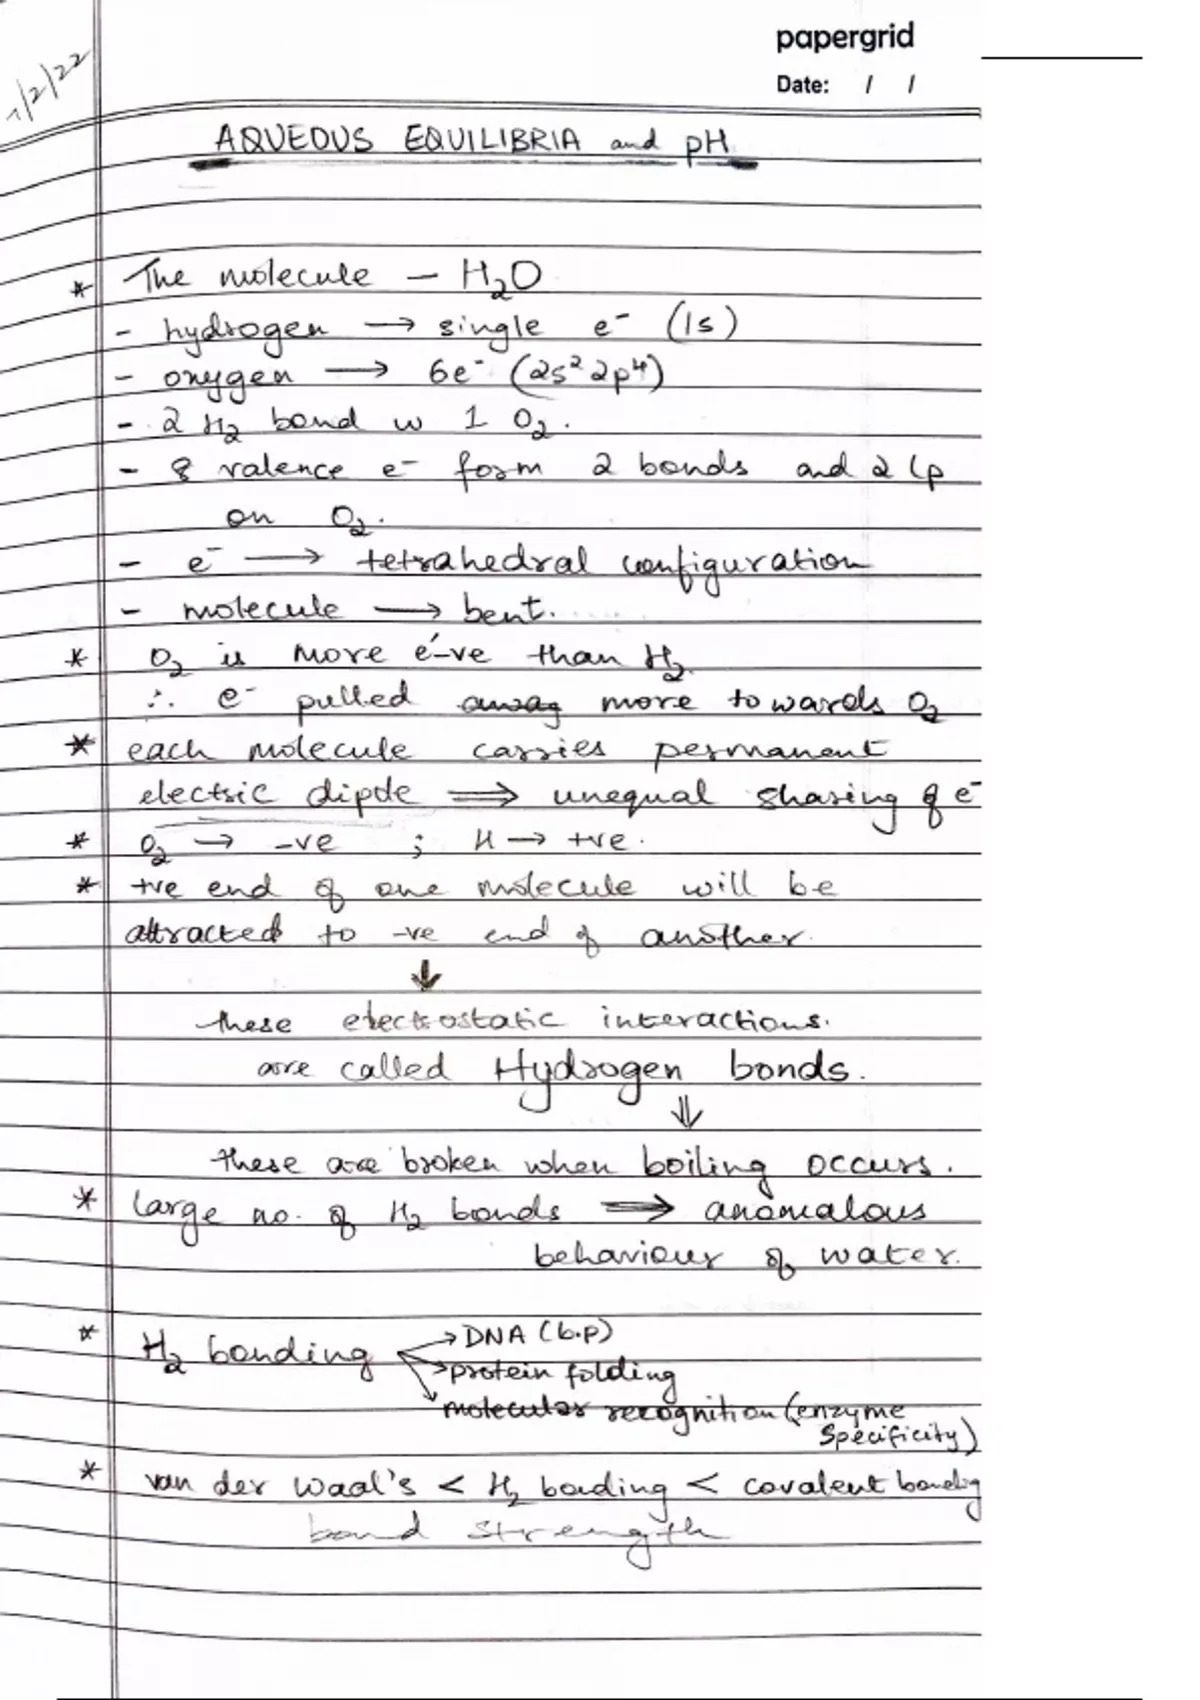 papergrid
Date: / /
1/2/22
AQUEOUS EQUILIBRIA and pH
* The molecule – H₂O
- hydrogen → single e⁻ (1s)
- oxygen → 6e⁻ (2s² 2p⁴)
- 2 H₂ bond w 1 O₂.
- 8 valence e⁻ form 2 bonds and 2 lp
on O₂.
- e⁻ → tetrahedral configuration
- molecule → bent.
* O₂ is more e⁻-ve than H₂
∴ e⁻ pulled away more towards O₂
* each molecule carries permanent
electric dipole ⟹ unequal sharing of e⁻
* O₂ → -ve ; H → +ve.
* +ve end of one molecule will be
attracted to -ve end of another.
↓
these electrostatic interactions.
are called Hydrogen bonds.
⇓
these are broken when boiling occurs.
* large no. of H₂ bonds ⟹ anomalous
behaviour of water.
* H₂ bonding → DNA (b.p)
→ protein folding
→ molecular recognition (enzyme
specificity)
* van der Waal's < H₂ bonding < covalent bonding
bond strength